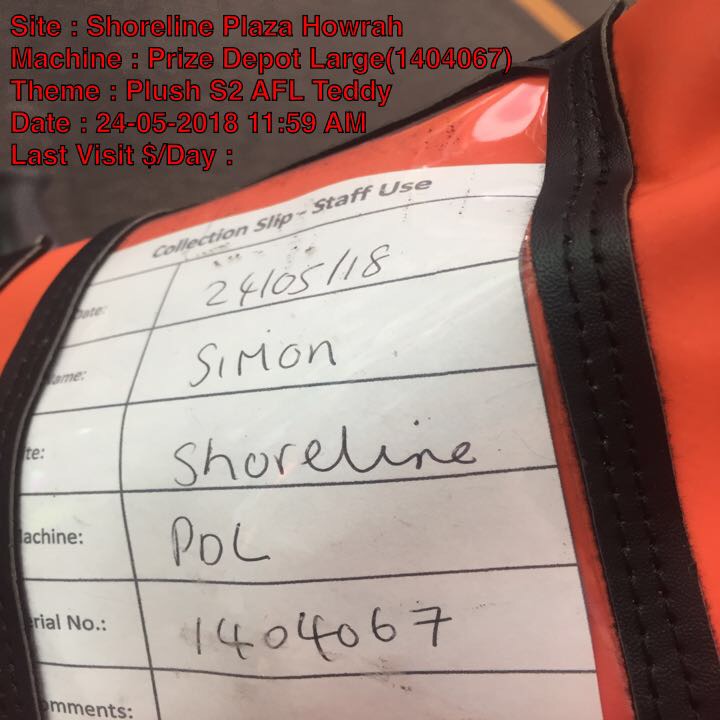 Site : Shoreline Plaza Howrah
Machine : Prize Depot Large(1404067)
Theme : Plush S2 AFL Teddy
Date : 24-05-2018 11:59 AM
Last Visit $/Day :
Collection Slip - Staff Use
Date: 24/05/18
ame: SIMON
te: Shoreline
achine: PDL
rial No.: 1404067
omments: